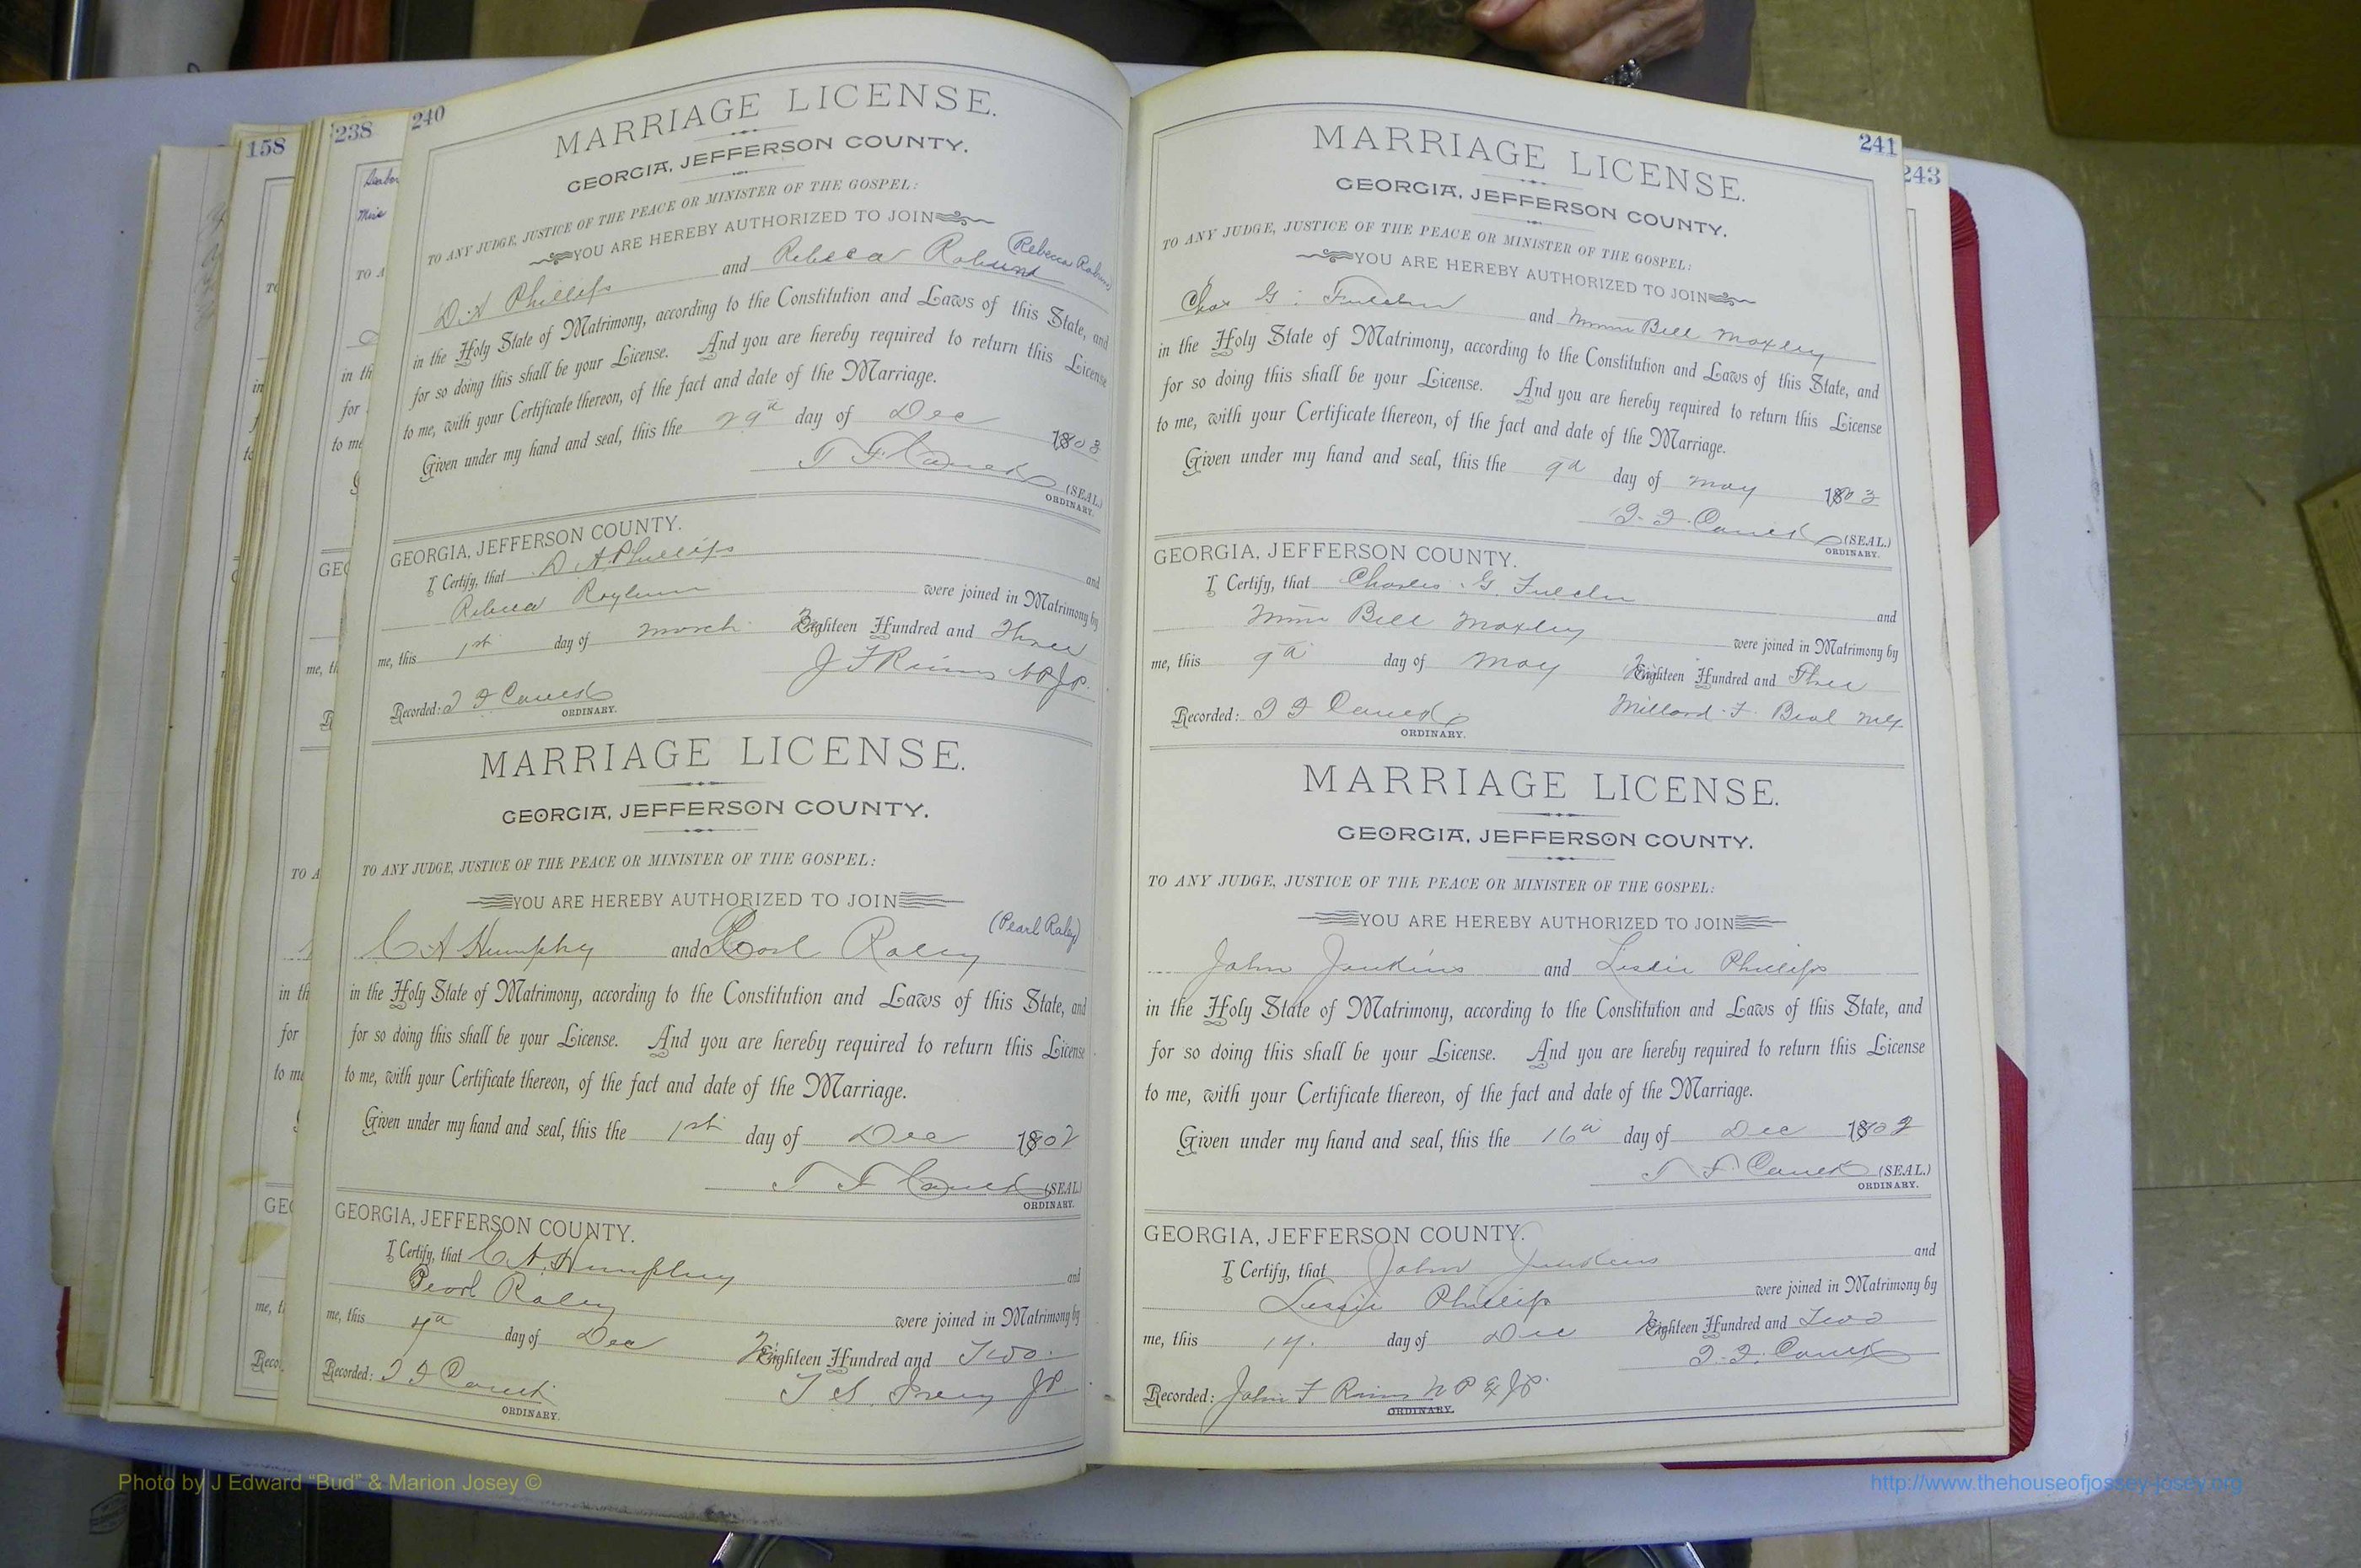 158
238
240
MARRIAGE LICENSE.
GEORGIA, JEFFERSON COUNTY.
TO ANY JUDGE, JUSTICE OF THE PEACE OR MINISTER OF THE GOSPEL:
YOU ARE HEREBY AUTHORIZED TO JOIN
(Rebecca
D. A Phillips and Rebecca
in the Holy State of Matrimony, according to the Constitution and Laws of this State, and
for so doing this shall be your License. And you are hereby required to return this License
to me, with your Certificate thereon, of the fact and date of the Marriage.
Given under my hand and seal, this the 29th day of Dec 1803
(SEAL.)
ORDINARY.
GEORGIA, JEFFERSON COUNTY.
I Certify, that D A Phillips and
Rebecca were joined in Matrimony by
me, this 1st day of March Eighteen Hundred and Three
J F N P J P.
Recorded: ORDINARY.
MARRIAGE LICENSE.
GEORGIA, JEFFERSON COUNTY.
TO ANY JUDGE, JUSTICE OF THE PEACE OR MINISTER OF THE GOSPEL:
YOU ARE HEREBY AUTHORIZED TO JOIN
(Pearl Raley)
C A Humphry and Pearl Raley
in the Holy State of Matrimony, according to the Constitution and Laws of this State, and
for so doing this shall be your License. And you are hereby required to return this License
to me, with your Certificate thereon, of the fact and date of the Marriage.
Given under my hand and seal, this the 1st day of Dec 1802
(SEAL)
ORDINARY.
GEORGIA, JEFFERSON COUNTY.
I Certify, that C A. Humphry and
Pearl Raley were joined in Matrimony by
me, this day of Dec Eighteen Hundred and Two.
T S. JP
Recorded: ORDINARY.
241
243
MARRIAGE LICENSE.
GEORGIA, JEFFERSON COUNTY.
TO ANY JUDGE, JUSTICE OF THE PEACE OR MINISTER OF THE GOSPEL:
YOU ARE HEREBY AUTHORIZED TO JOIN
Chas G. Fulcher and Bell Moxley
in the Holy State of Matrimony, according to the Constitution and Laws of this State, and
for so doing this shall be your License. And you are hereby required to return this License
to me, with your Certificate thereon, of the fact and date of the Marriage.
Given under my hand and seal, this the 9th day of May 1803
(SEAL.)
ORDINARY.
GEORGIA, JEFFERSON COUNTY.
I Certify, that Charles G. Fulcher and
Bell Moxley were joined in Matrimony by
me, this 9th day of May Eighteen Hundred and Three
Millard F. Beal
Recorded: ORDINARY.
MARRIAGE LICENSE.
GEORGIA, JEFFERSON COUNTY.
TO ANY JUDGE, JUSTICE OF THE PEACE OR MINISTER OF THE GOSPEL:
YOU ARE HEREBY AUTHORIZED TO JOIN
John Jenkins and Phillips
in the Holy State of Matrimony, according to the Constitution and Laws of this State, and
for so doing this shall be your License. And you are hereby required to return this License
to me, with your Certificate thereon, of the fact and date of the Marriage.
Given under my hand and seal, this the 16th day of Dec 1802
(SEAL.)
ORDINARY.
GEORGIA, JEFFERSON COUNTY.
I Certify, that John Jenkins and
Phillips were joined in Matrimony by
me, this day of Dec Eighteen Hundred and Two
Recorded: John F N P & JP.
ORDINARY.
Photo by J Edward “Bud” & Marion Josey ©
http://www.thehouseofjossey-josey.org